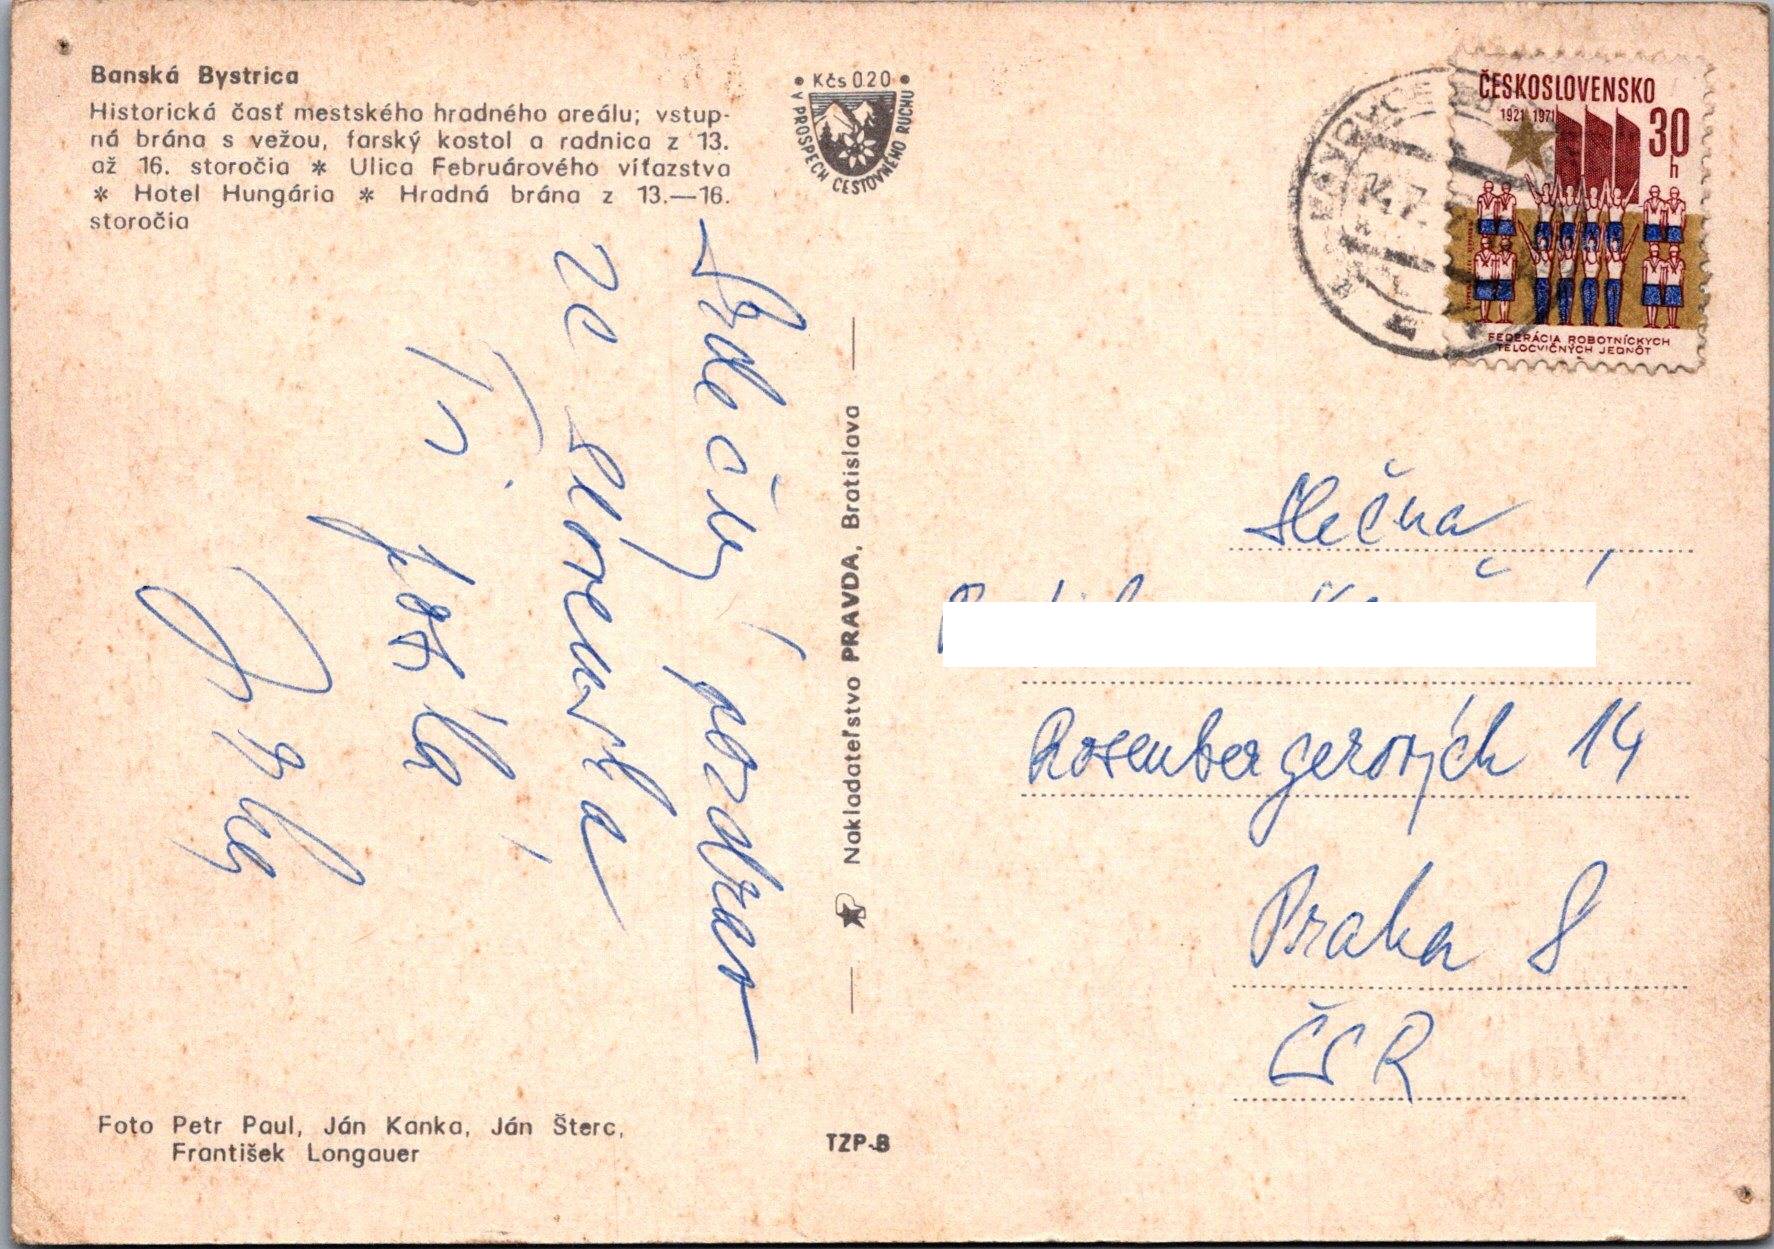 Banská Bystrica
Historická časť mestského hradného areálu; vstup-
ná brána s vežou, farský kostol a radnica z 13.
až 16. storočia * Ulica Februárového víťazstva
* Hotel Hungária * Hradná brána z 13.—16.
storočia
Srdečný pozdrav
ze Slovenska
Ti posílá
Kčs 0.20
V PROSPECH CESTOVNÉHO RUCHU
Nakladateľstvo PRAVDA, Bratislava
ČESKOSLOVENSKO
1921 1971
30
h
FEDERÁCIA ROBOTNÍCKYCH
TELOCVIČNÝCH JEDNÔT
Slečna
Rosenbergerových 14
Praha 8
ČSR
Foto Petr Paul, Ján Kanka, Ján Šterc,
František Longauer
TZP-8